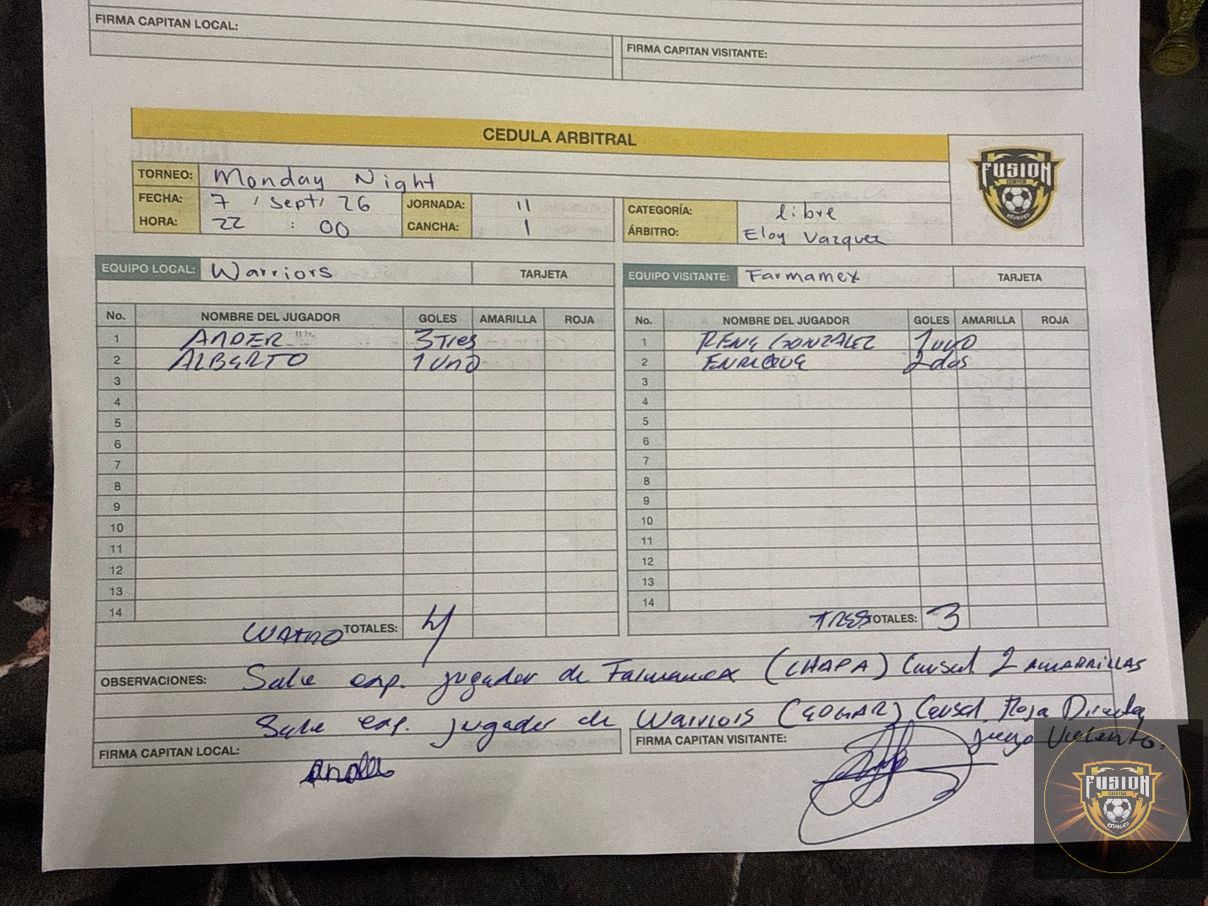 FIRMA CAPITAN LOCAL:
FIRMA CAPITAN VISITANTE:
CEDULA ARBITRAL
FUSION
CENTER
TORNEO: Monday Night
FECHA: 7 / Sept / 26 JORNADA: 11
HORA: 22 : 00 CANCHA: 1
CATEGORÍA: libre
ÁRBITRO: Eloy Vazquez
EQUIPO LOCAL: Warriors TARJETA
EQUIPO VISITANTE: Farmamex TARJETA
No. NOMBRE DEL JUGADOR GOLES AMARILLA ROJA
1 ANDER 3 Tres
2 ALBERTO 1 Uno
3
4
5
6
7
8
9
10
11
12
13
14
CUATRO TOTALES: 4
No. NOMBRE DEL JUGADOR GOLES AMARILLA ROJA
1 RENE GONZALEZ 1 uno
2 ENRIQUE 2 dos
3
4
5
6
7
8
9
10
11
12
13
14
TRES TOTALES: 3
OBSERVACIONES: Sale exp. jugador de Farmamex (CHAPA) Causal 2 AMARRILLAS
Sale exp. jugador de Warriors (EDGAR) Causal Roja Directa
juego Violento.
FIRMA CAPITAN LOCAL:
FIRMA CAPITAN VISITANTE:
FUSION
CENTER